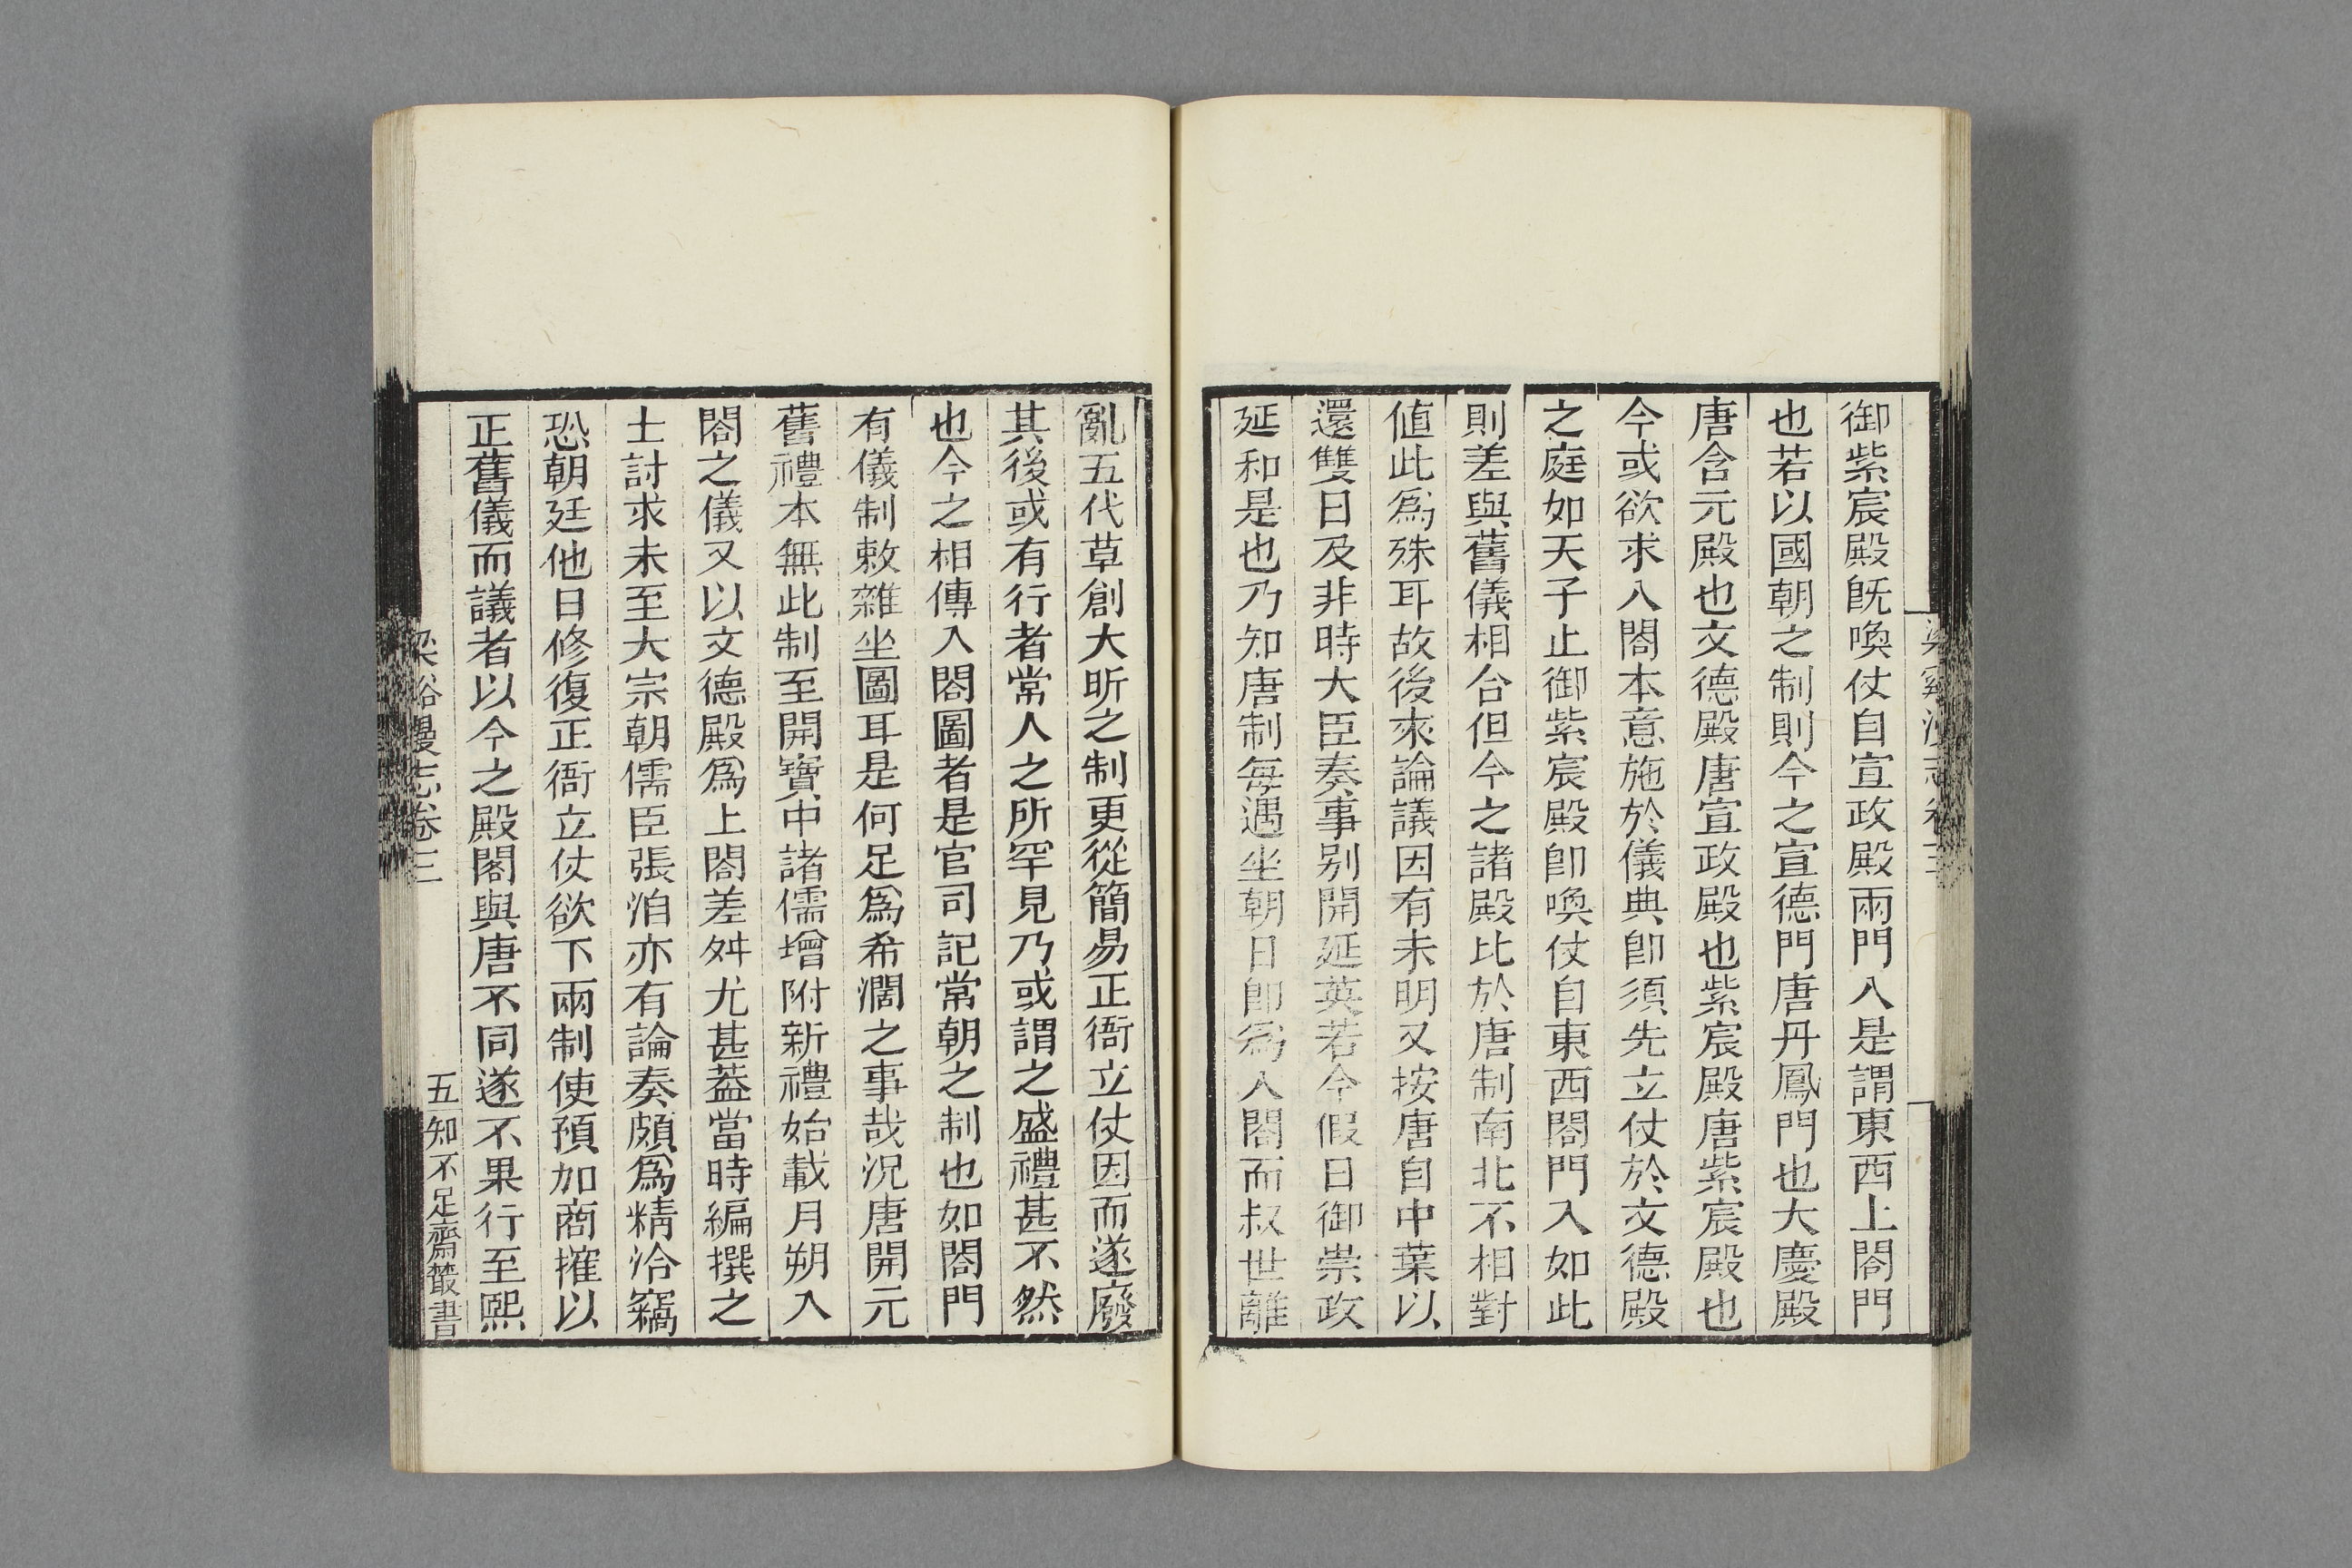 御紫宸殿旣喚仗自宣政殿兩門入是謂東西上閤門
也若以國朝之制則今之宣德門唐丹鳳門也大慶殿
唐含元殿也文德殿唐宣政殿也紫宸殿唐紫宸殿也
今或欲求入閤本意施於儀典卽須先立仗於文德殿
之庭如天子止御紫宸殿卽喚仗自東西閤門入如此
則差與舊儀相合但今之諸殿比於唐制南北不相對
値此爲殊耳故後來論議因有未明又按唐自中葉以
還雙日及非時大臣奏事别開延英若今假日御崇政
延和是也乃知唐制每遇坐朝日卽爲入閤而叔世離
亂五代草創大昕之制更從簡易正衙立仗因而遂廢
其後或有行者常人之所罕見乃或謂之盛禮甚不然
也今之相傳入閤圖者是官司記常朝之制也如閤門
有儀制敕雜坐圖耳是何足爲希濶之事哉況唐開元
舊禮本無此制至開寶中諸儒增附新禮始載月朔入
閤之儀又以文德殿爲上閤差舛尤甚葢當時編撰之
士討求未至太宗朝儒臣張洎亦有論奏頗爲精洽竊
恐朝廷他日修復正衙立仗欲下兩制使預加商搉以
正舊儀而議者以今之殿閣與唐不同遂不果行至熙
梁谿漫志卷三
五
知不足齋叢書